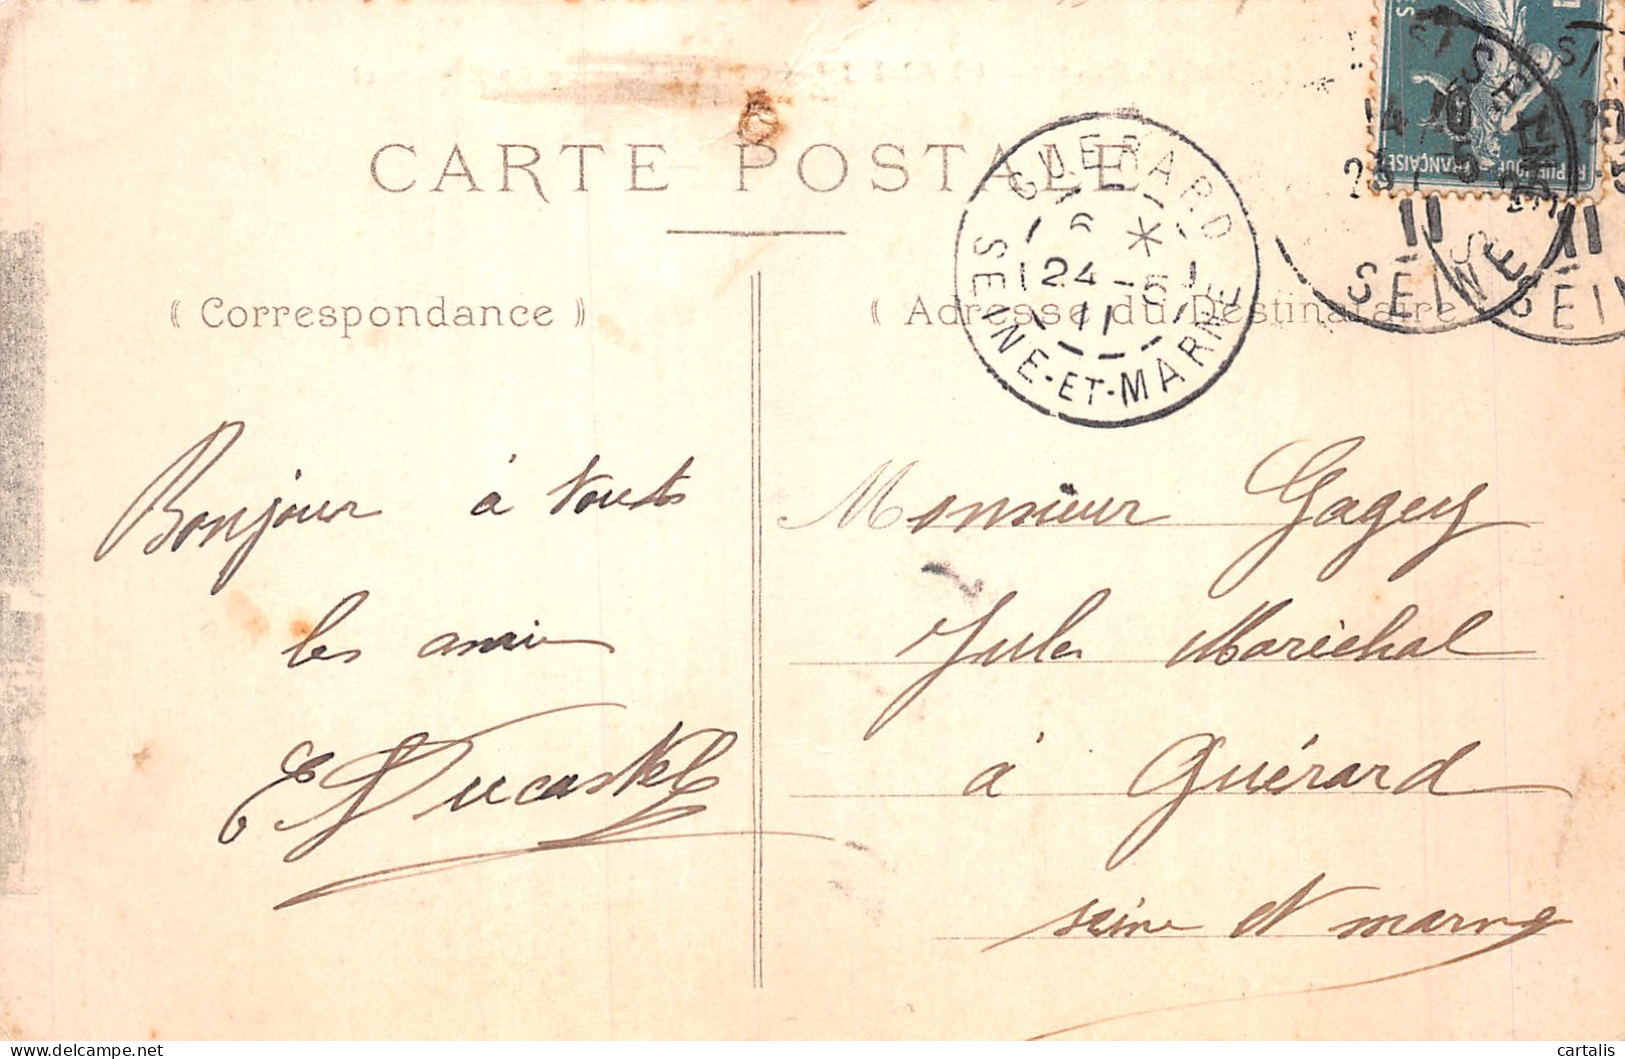 CARTE POSTALE
GUERARD
6 *
24 - 5
11
SEINE-ET-MARNE
14 10
23 5
11
SEINE
11
SEINE
( Correspondance )
( Adresse du Destinataire
Bonjour à tous
les amis
E Ducastel
Monsieur Gagey
Jules Maréchal
à Guérard
seine et marne
cartalis